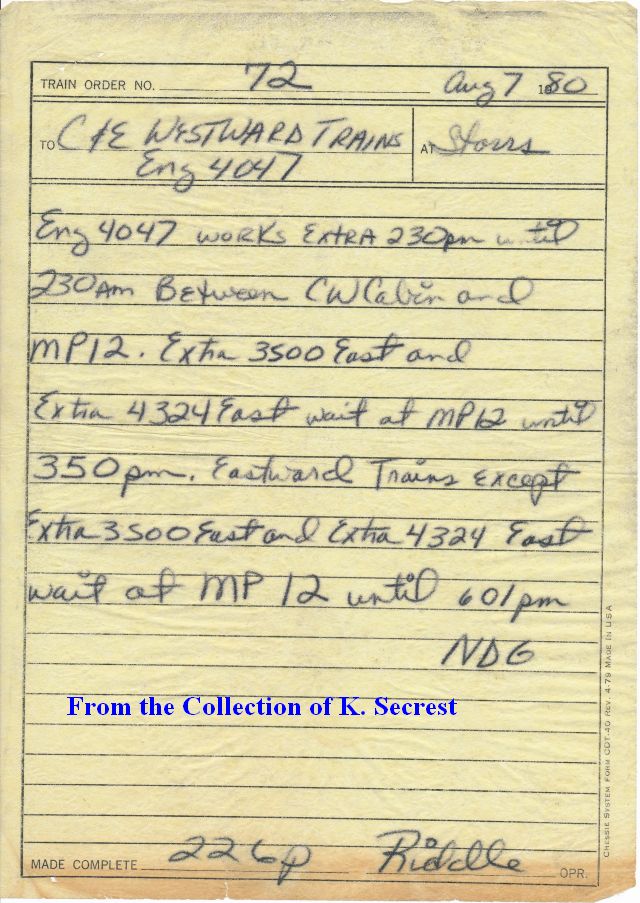 TRAIN ORDER NO. 72 Aug 7 1980
TO C&E WESTWARD TRAINS AT Storrs
Eng 4047
Eng 4047 WORKS EXTRA 230pm until
230Am Between CW Cabin and
MP12. Extra 3500 East and
Extra 4324 East wait at MP12 until
350pm. Eastward Trains except
Extra 3500 East and Extra 4324 East
wait at MP 12 until 601pm
NDG
From the Collection of K. Secrest
MADE COMPLETE 226p Riddle OPR.
CHESSIE SYSTEM FORM CDT-40 REV. 4-79 MADE IN USA